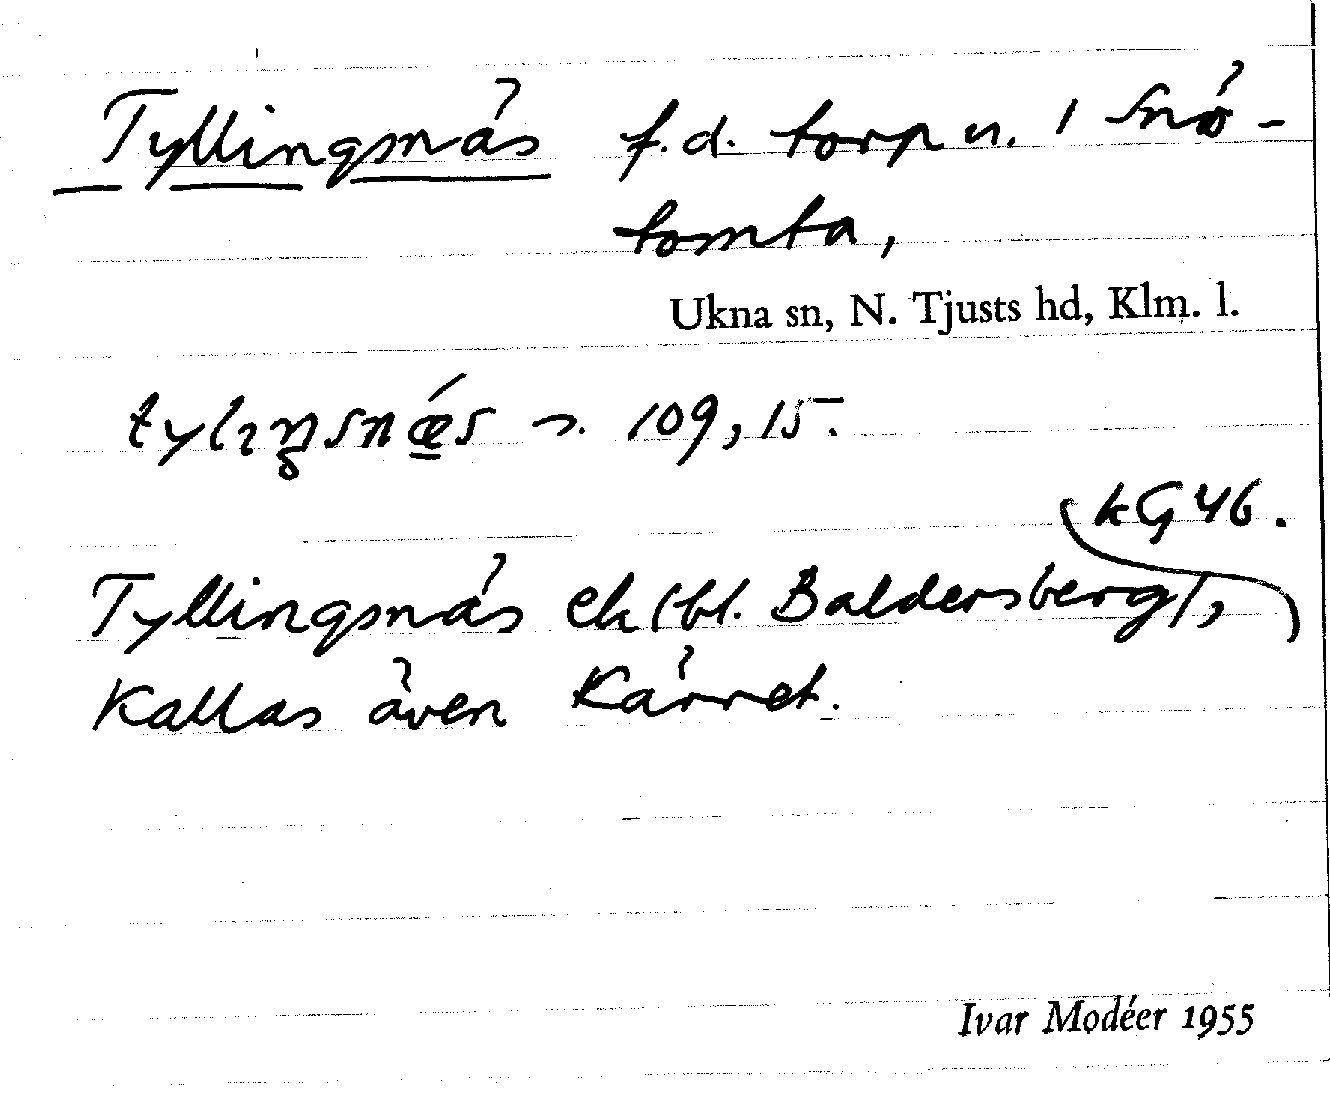 Tyllingsnäs f.d. torp u. 1 Snö-
tomta,
Ukna sn, N. Tjusts hd, Klm. l.
109, 15.
kG 46.
Tyllingsnäs ek (bl. Baldersberg),
Kallas även Kärret.
Ivar Modéer 1955